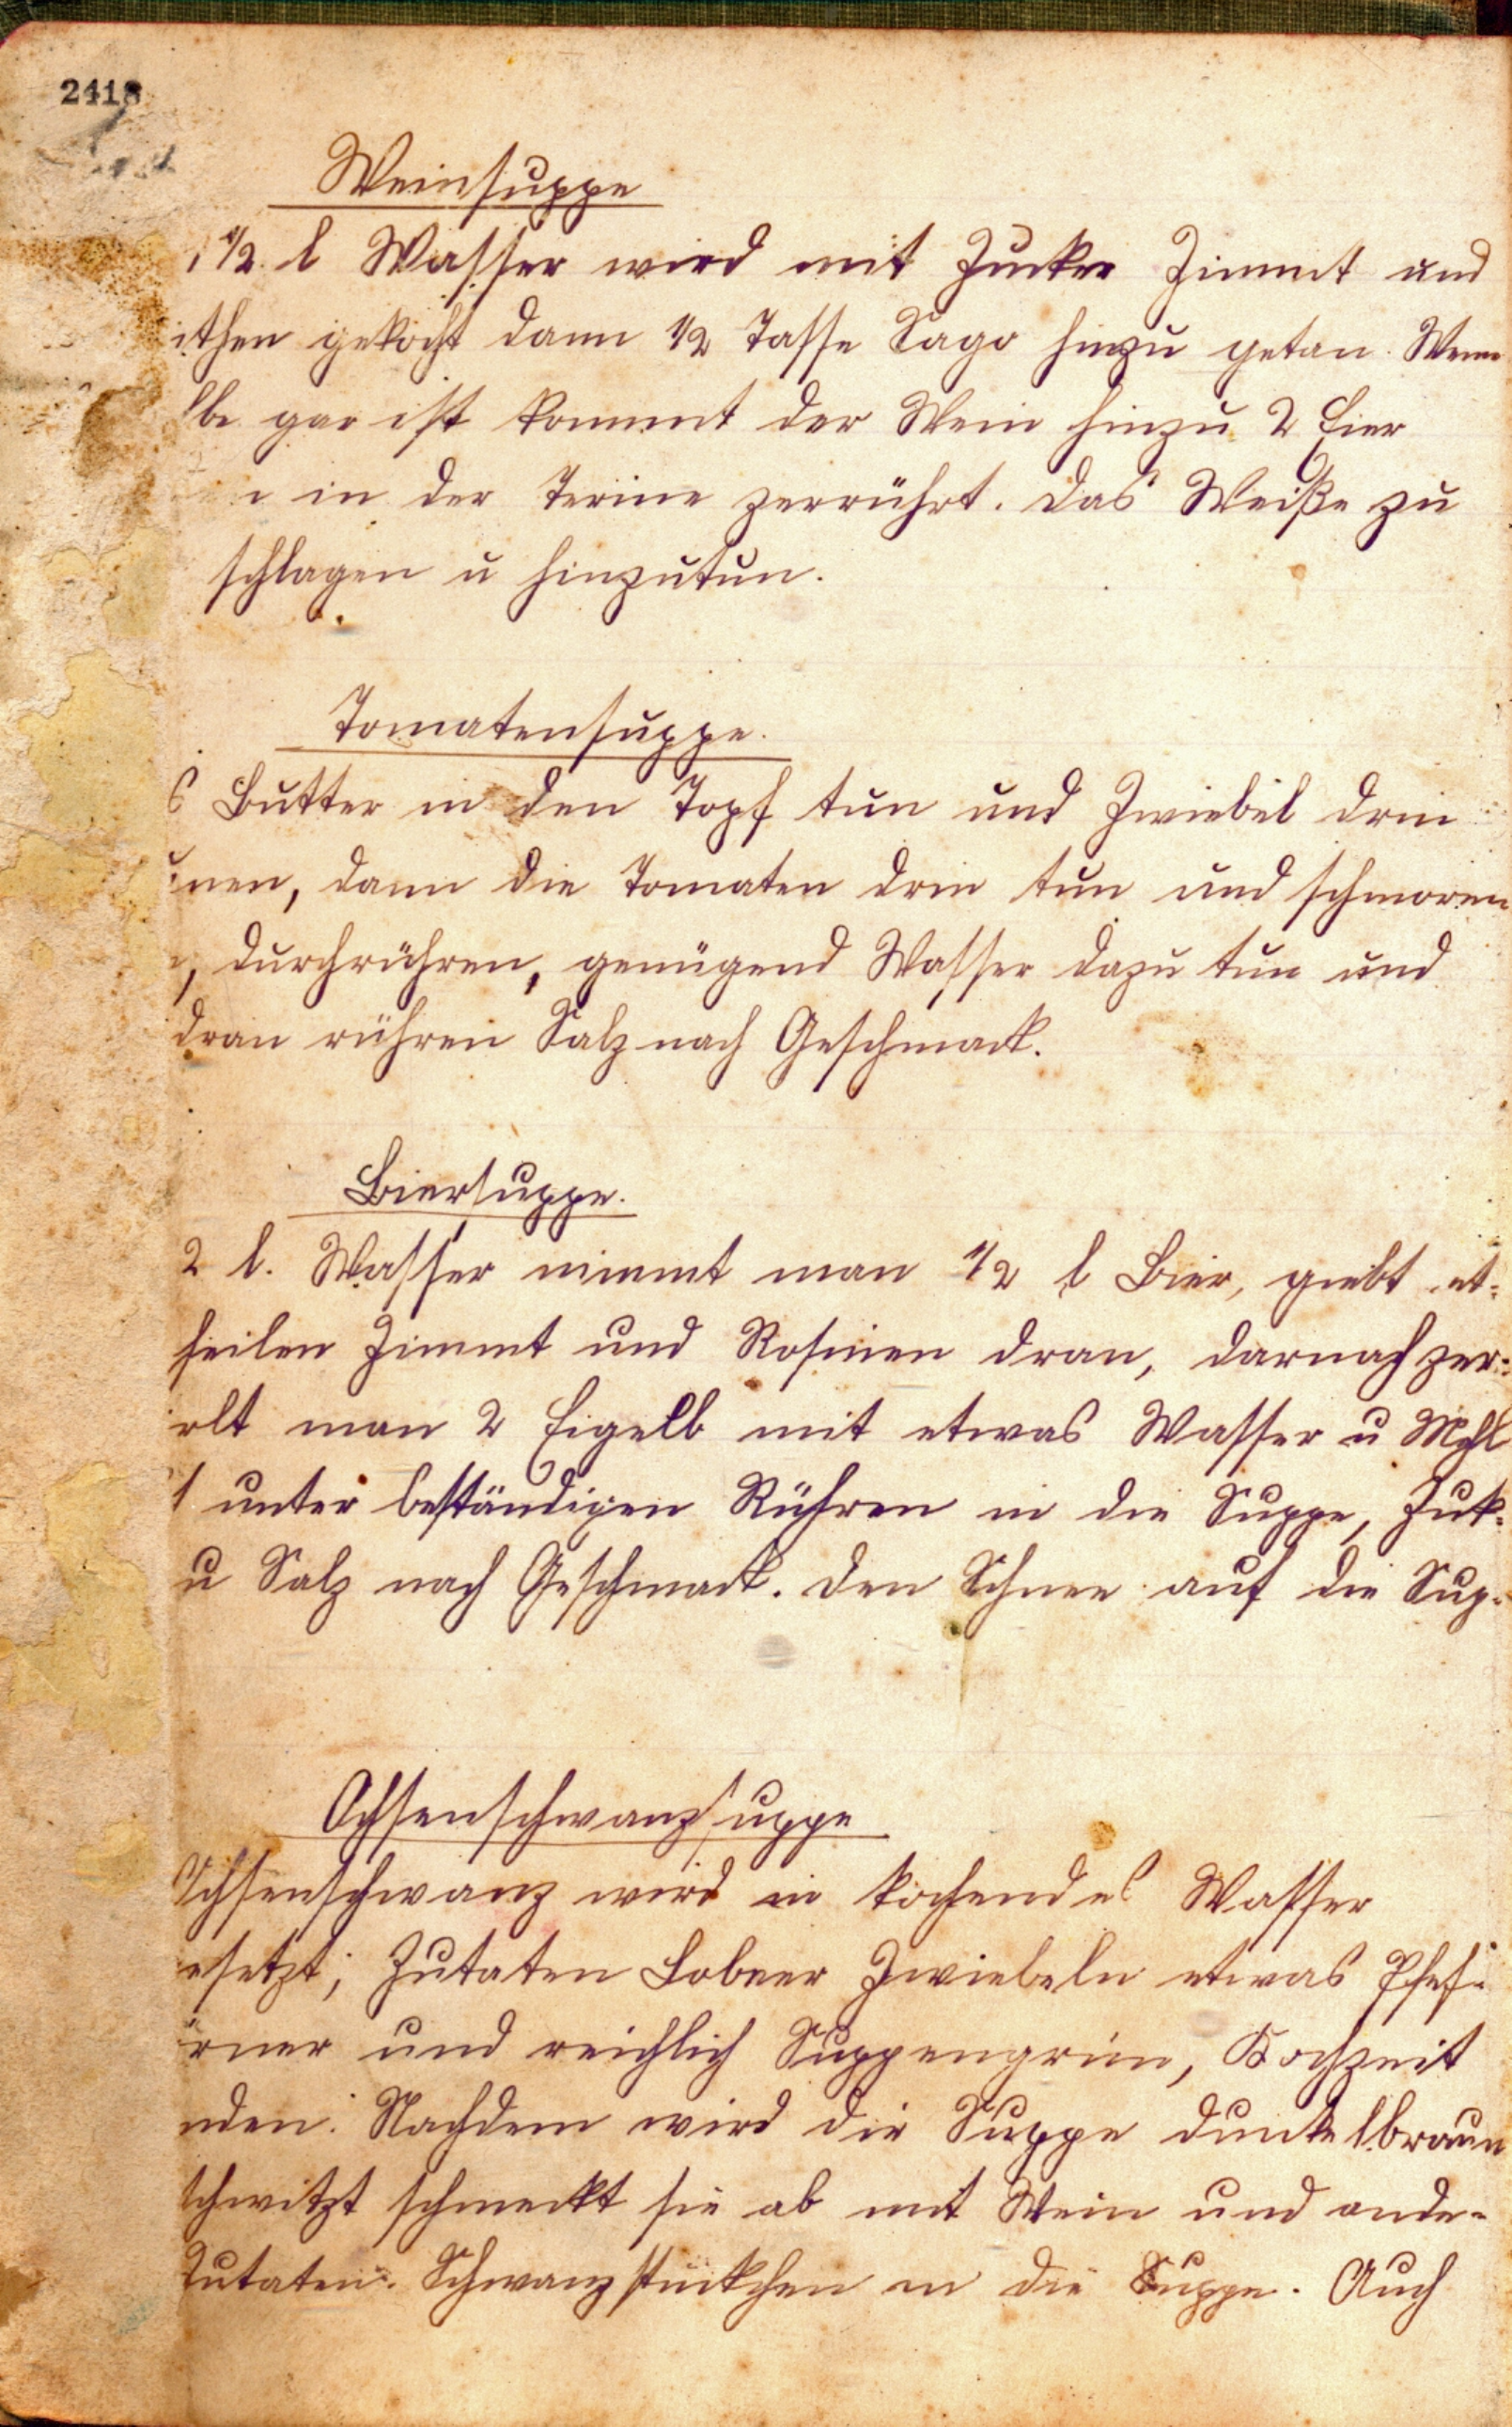 2418
Weinsuppe
1 1/2 l Wasser wird mit Zucker Zimmt und
ithen gekocht dann 1/2 Tasse Sago hinzu getan. Wenn
lbe gar ist kommt der Wein hinzu 2 Eier
in der Terine zerrührt. das Weiße zu
schlagen u hinzutun.
Tomatensuppe.
s Butter in den Topf tun und Zwiebel drin
nen, dann die Tomaten drin tun und schmoren
, durchrühren, genügend Wasser dazu tun und
dran rühren Salz nach Geschmack.
Biersuppe.
2 l. Wasser nimmt man 1/2 l Bier, giebt et-
heilen Zimmt und Rosinen dran, darnach zer-
rlt man 2 Eigelb mit etwas Wasser u Mehl
unter beständigen Rühren in die Suppe, Zuk-
u Salz nach Geschmack. den Schnee auf die Sup-
Ochsenschwanzsuppe
Ochsenschwanz wird in kochendes Wasser
esetzt; Zutaten Lobeer Zwiebeln etwas Pfef-
örner und reichlich Suppengrün, Kochzeit
nden. Nachdem wird die Suppe dunkelbraun
schwitzt schmeckt sie ab mit Wein und ande-
Zutaten. Schwanzstückchen in die Suppe. Auch